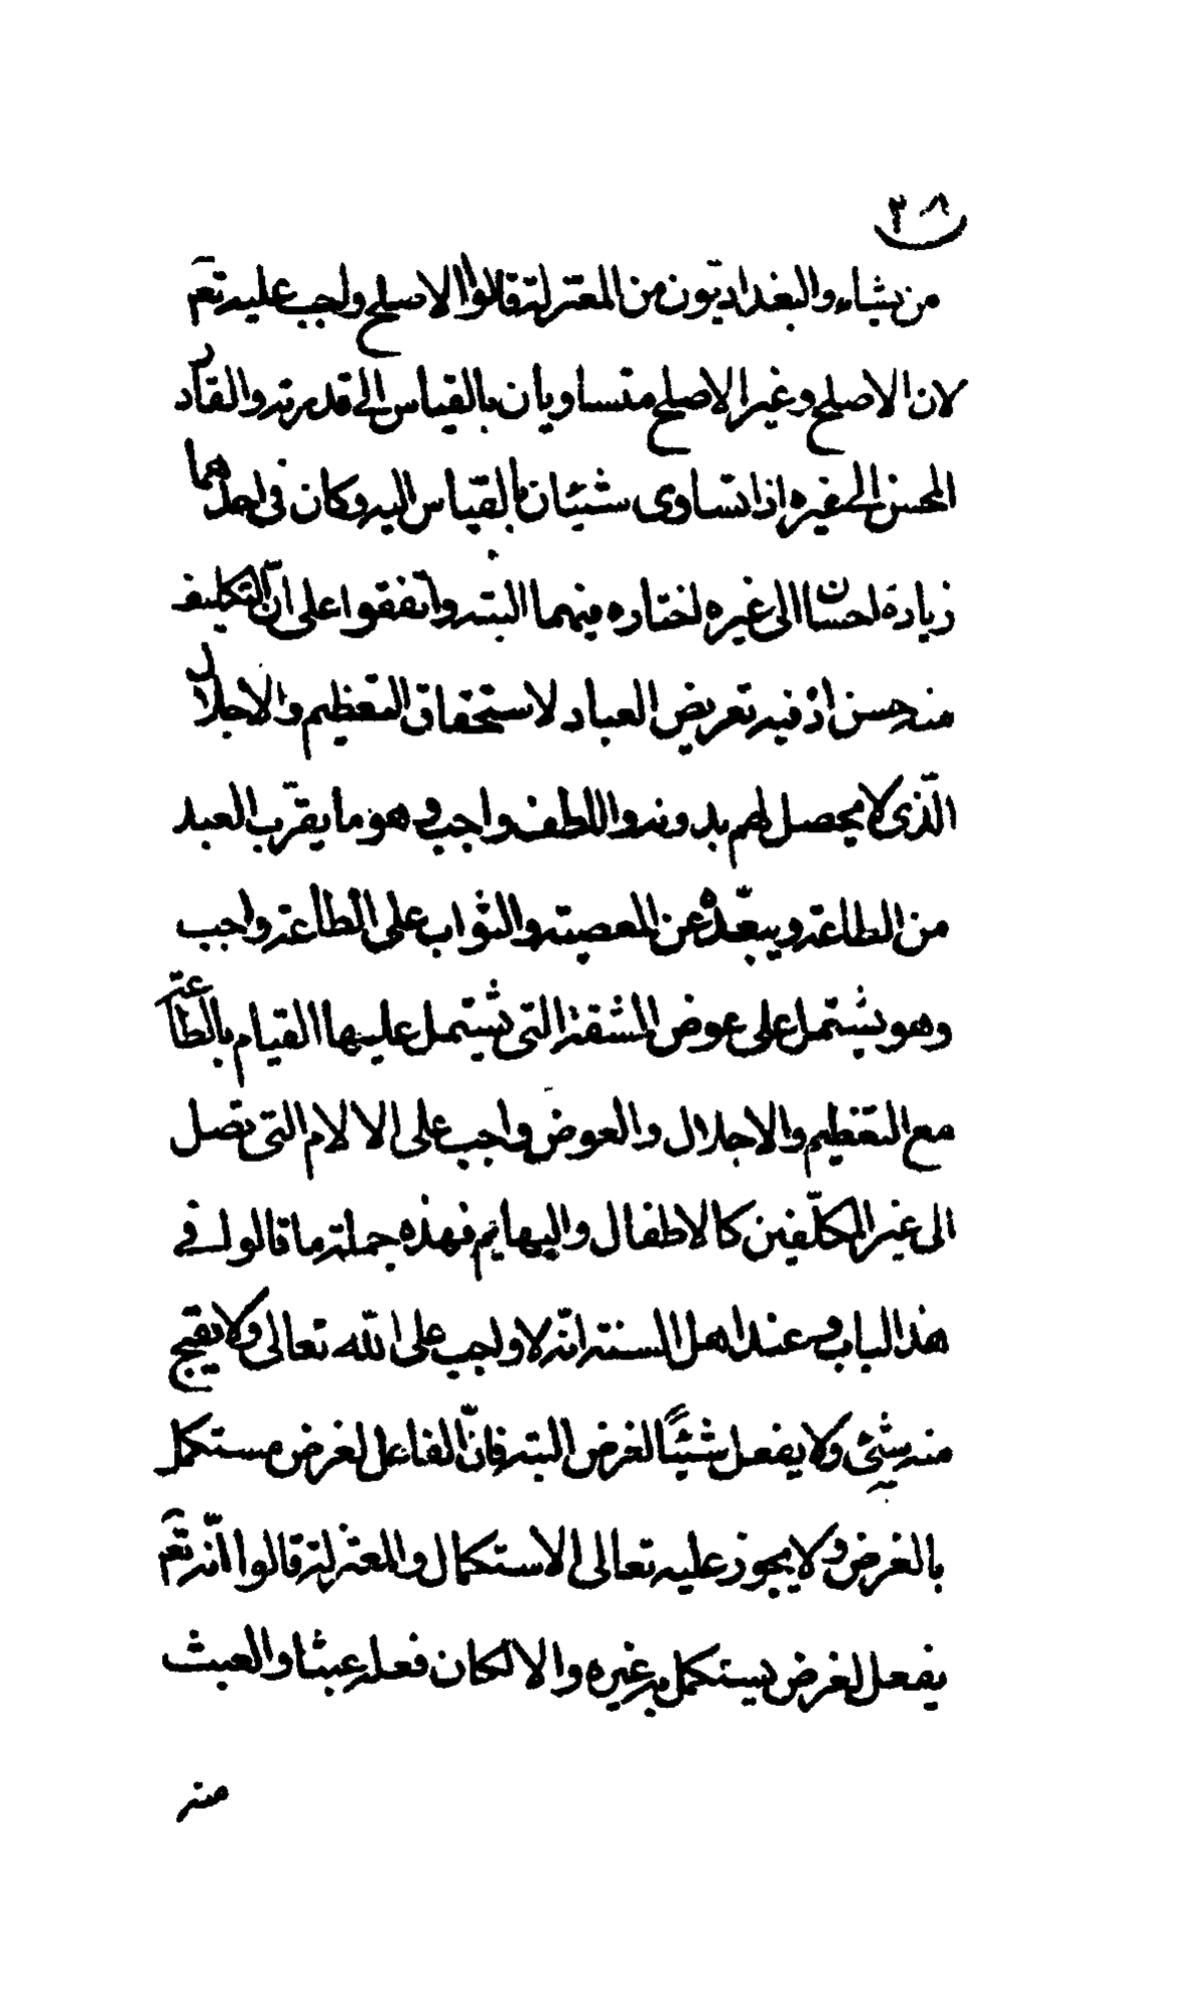 ٣٨
من يشاء والبغداديّون من المعتزلة قالوا الاصلح واجب عليه تعٓم
لان الاصلح وغير الاصلح متساويان بالقياس الى قدرته والقادر
المحسن الى غيره اذا تساوى شئيان بالقياس اليه وكان فى احدهما
زيادة احسان الى غيره اختاره منهما البتة واتّفقوا على انّ التكليف
منه حسن اذ فيه تعريض العباد لاستحقاق التعظيم والاجلال
الّذى لا يحصل لهم بدونه واللطف واجب وهو ما يقرّب العبد
من الطاعة ويبعّده عن المعصية والثواب على الطاعة واجب
وهو يشتمل على عوض المشقة التى يشتمل عليها القيام بالطاعة
مع التعظيم والاجلال والعوض واجب على الالام التى تصل
الى غير المكلّفين كالاطفال والبهايم فهذه جملة ما قالوا فى
هذا الباب وعند اهل السنة انّه لا واجب على الله تعالى ولا يقبح
منه شئ ولا يفعل شئيًا لغرض البتة فانّ الفاعل لغرض مستكمل
بالغرض ولا يجوز عليه تعالى الاستكمال والمعتزلة قالوا انّه تعٓم
يفعل لغرض يستكمل به غيره والا لكان فعله عبثا والعبث
منه